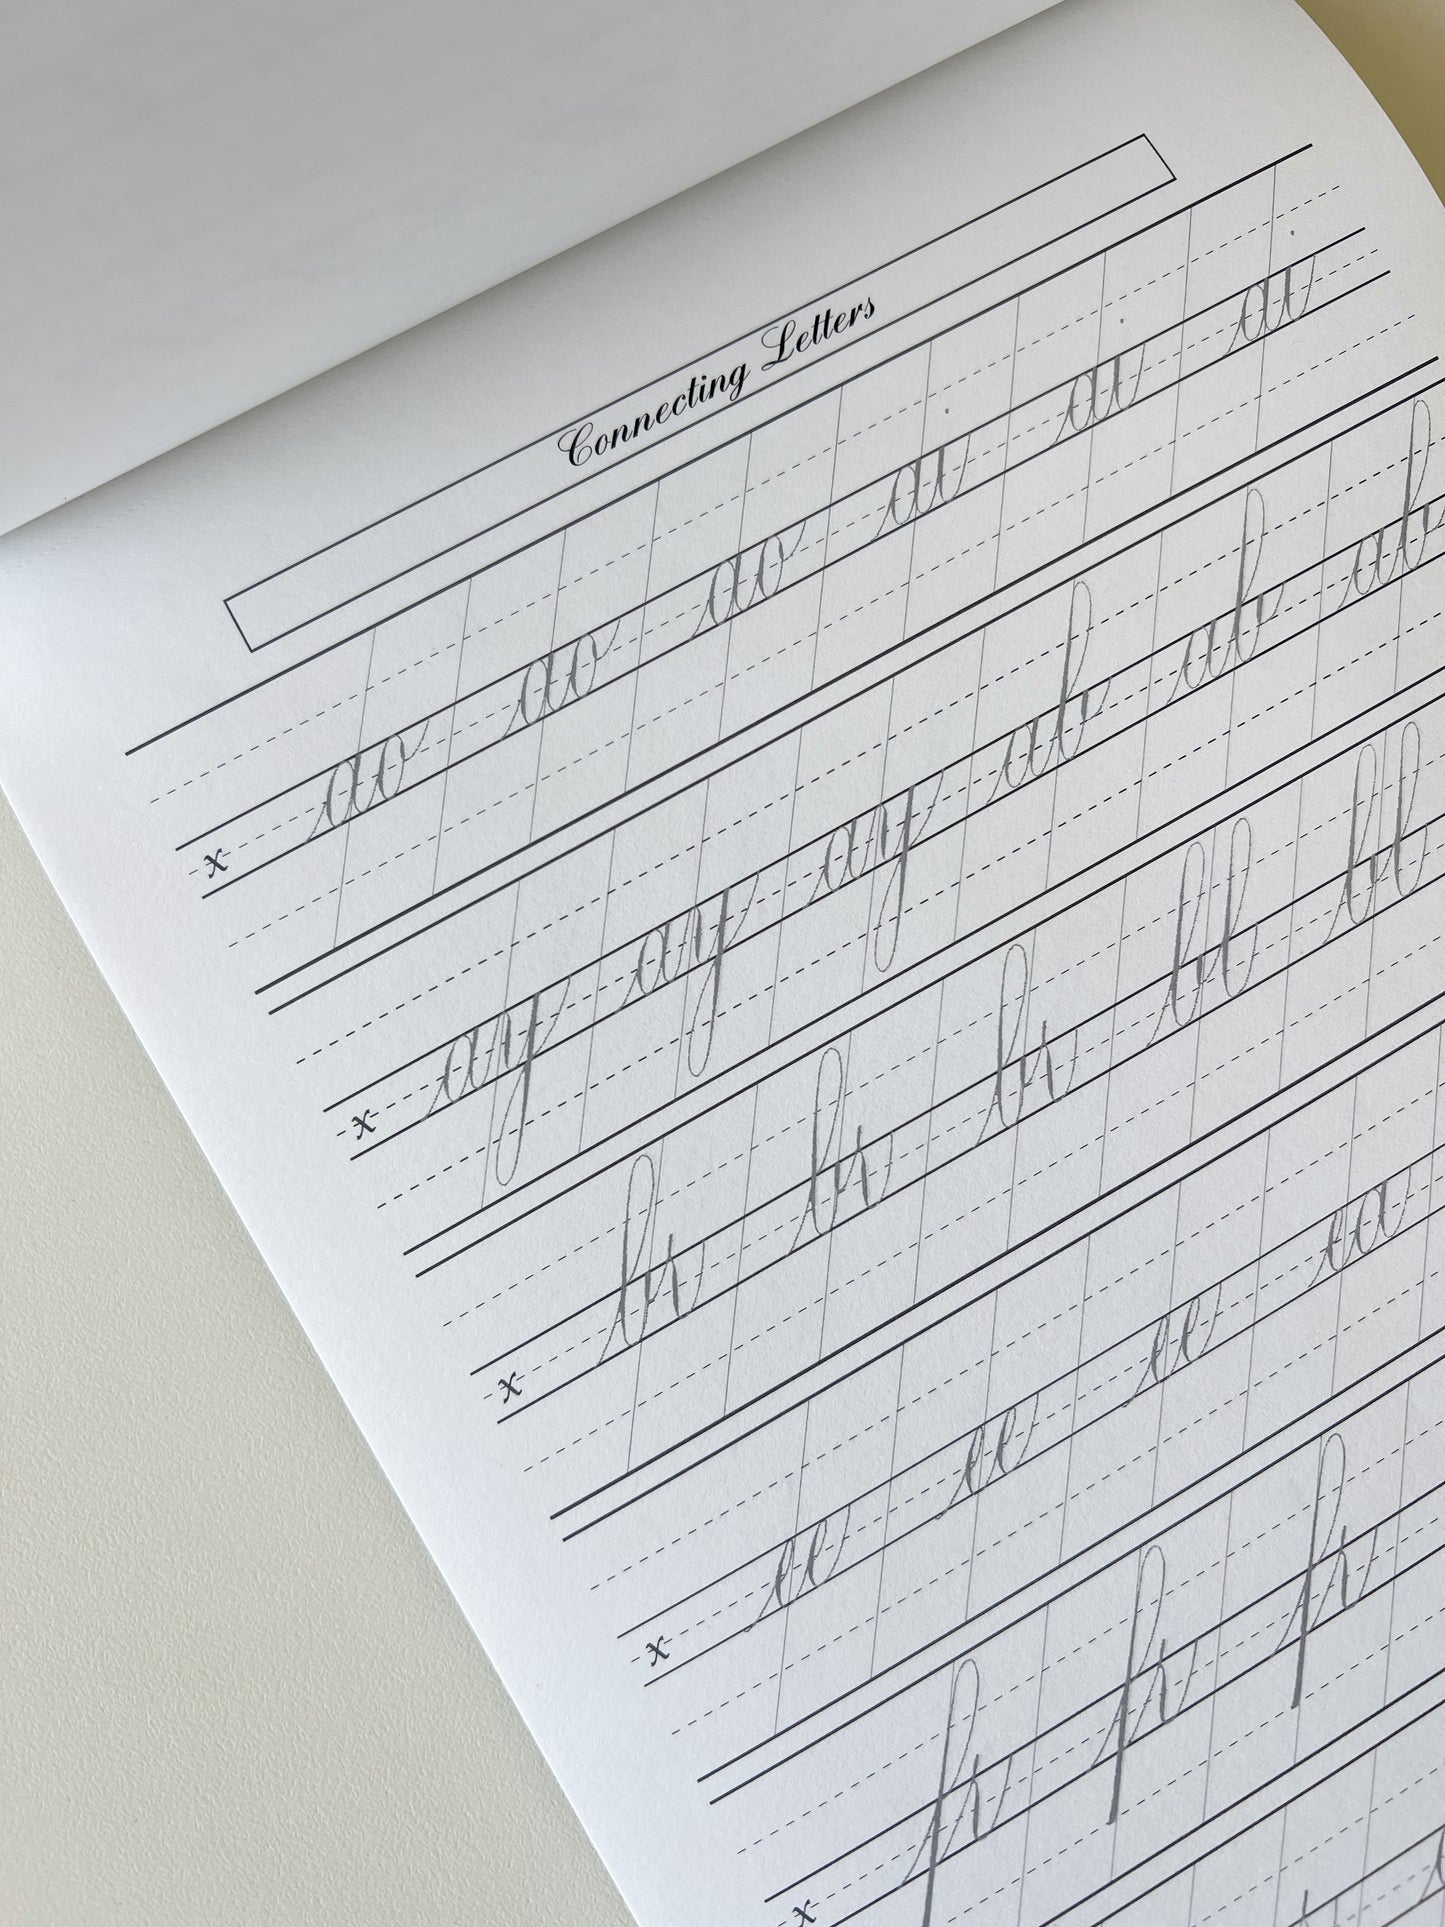 Connecting Letters
x ao ao ao ai ai ai
x ay ay ay ab ab ab
x br br br bl bl
x ee ee ee ea
x fr fr fr